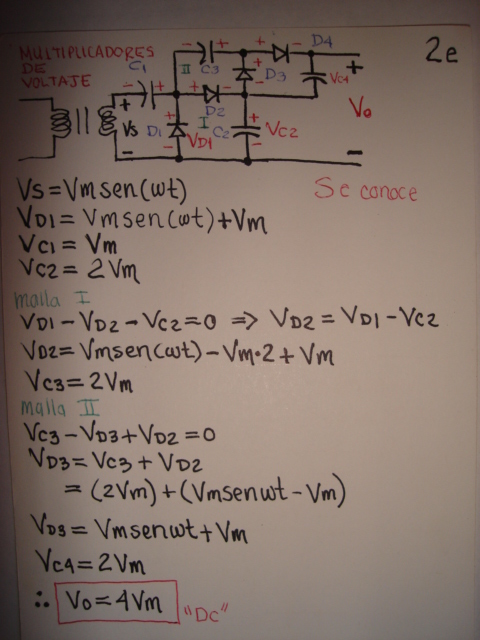 MULTIPLICADORES
DE
VOLTAJE
2e
C1
II
C3
D4
D3
VC4
D2
I
Vs
D1
VD1
C2
VC2
Vo
Vs = Vm sen(ωt)
Se conoce
VD1 = Vm sen(ωt) + Vm
VC1 = Vm
VC2 = 2Vm
malla I
VD1 - VD2 - VC2 = 0 ⇒ VD2 = VD1 - VC2
VD2 = Vm sen(ωt) - Vm·2 + Vm
VC3 = 2Vm
malla II
VC3 - VD3 + VD2 = 0
VD3 = VC3 + VD2
= (2Vm) + (Vm senωt - Vm)
VD3 = Vm senωt + Vm
VC4 = 2Vm
∴ Vo = 4Vm "DC"